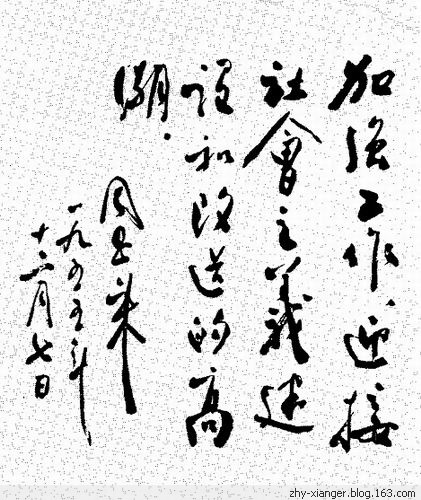 加强工作迎接
社會主義建
設和改造的高
潮.
周恩来
一九五五年
十二月七日
zhy-xianger.blog.163.com